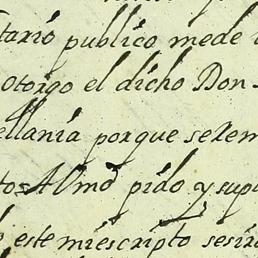 tario publico mede
otorgo el dicho Don
ellania porque se Rem
to= Al md pido y sup
este mi escripto se sir